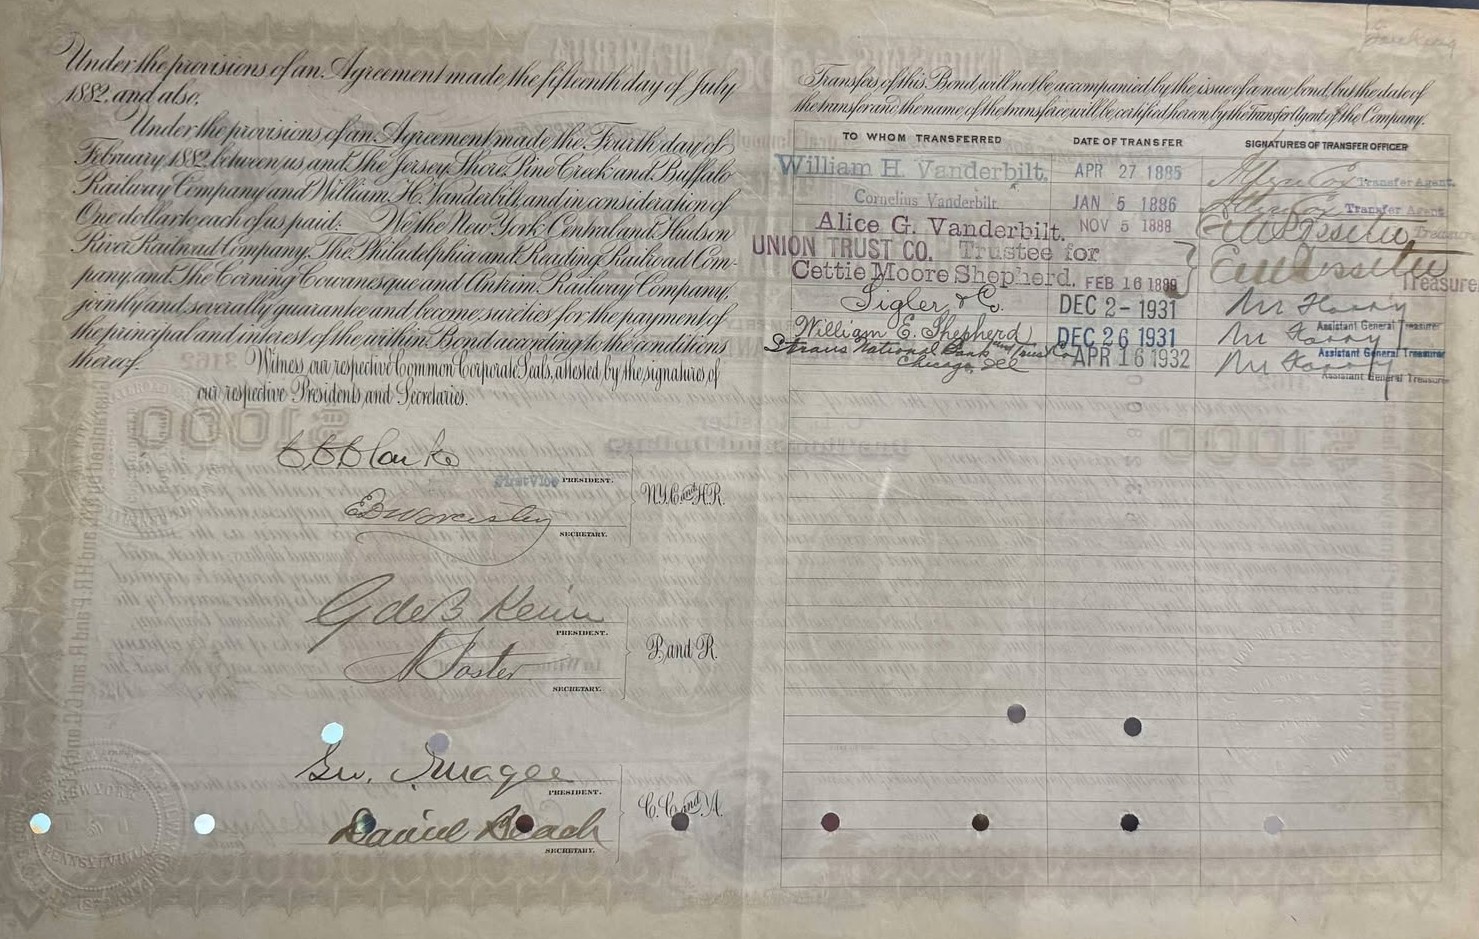 Under the provisions of an Agreement made the fifteenth day of July
1882. and also.
Under the provisions of an Agreement made the Fourth day of
February 1882 between us and The Jersey Shore Pine Creek and Buffalo
Railway Company and William H. Vanderbilt, and in consideration of
One dollar to each of us paid: We the New York Central and Hudson
River Railroad Company. The Philadelphia and Reading Railroad Com-
pany, and The Corning Cowanesque and Antrim Railway Company,
jointly and severally guarantee and become sureties for the payment of
the principal and interest of the within Bond according to the conditions
thereof.
Witness, our respective Common Corporate Seals, attested by the signatures of
our respective Presidents and Secretaries.
First Vice PRESIDENT.
E D Worcester
SECRETARY.
N.Y.C. and H.R.
G de B Keim
PRESIDENT.
SECRETARY.
P. and R.
Geo. J. Magee
PRESIDENT.
Daniel Beach
SECRETARY.
C. C. and A.
Transfers of this Bond, will not be accompanied by the issue of a new bond, but the date of
the transfer and the name of the transferee will be certified hereon by the Transfer Agent of the Company.
TO WHOM TRANSFERRED DATE OF TRANSFER SIGNATURES OF TRANSFER OFFICER
William H. Vanderbilt. APR 27 1885 Transfer Agent.
Cornelius Vanderbilt. JAN 5 1886 Transfer Agent
Alice G. Vanderbilt. NOV 5 1888 E V W Rossiter Treasurer
UNION TRUST CO. Trustee for
Cettie Moore Shepherd. FEB 16 1889 E V W Rossiter Treasurer
Sigler & Co. DEC 2 - 1931
Assistant General Treasurer
William E. Shepherd DEC 26 1931
Assistant General Treasurer
Straus National Bank and Trust Co APR 16 1932
Chicago, Ill
Assistant General Treasurer
NEW YORK
PENNSYLVANIA